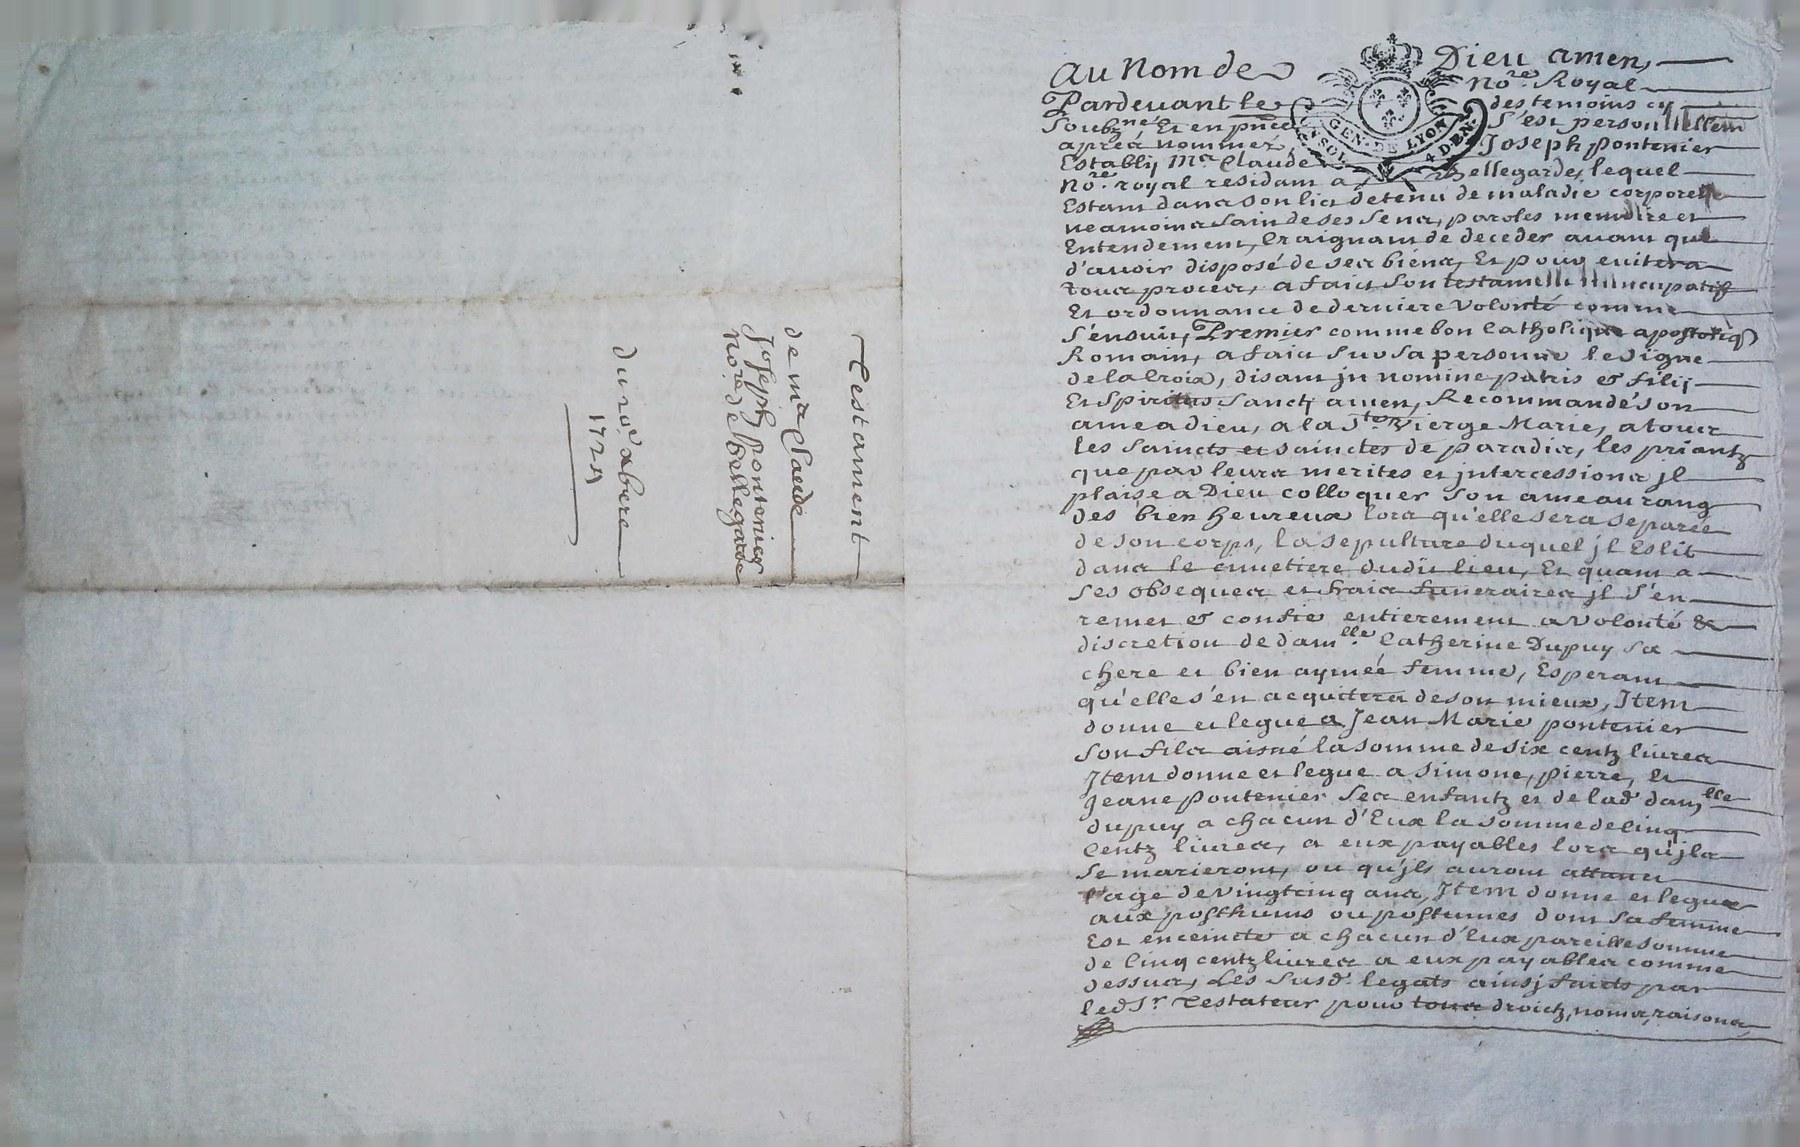 Testament
de mr Claude
Joseph pontenier
Nore de Bellegarde
du 10e xbere
1725
Au Nom de Dieu amen,
Pardevant le Nore. Royal
Soubzné Et en pnce des temoins cy
aprés nommez, s'est personnellem
Estably Mr Claude Joseph pontenier
Nore. royal residant a Bellegarde, lequel
Estant dans son lict detenu de maladie corporelle
neamoins sain de ses sens, paroles memoire et
Entendement, Craignant de deceder avant que
d'avoir disposé de ses biens, Et pour eviter a
tous proces, a faict son testament nuncupatif
Et ordonnance de derniere volonté comme
s'ensuit, Premier comme bon Catholique apostoliq
Romain, a faict sur sa personne le signe
de la Croix, disant jn nomine patris & filij
Et Spiritus Sancti amen, Recommandé son
ame a Dieu, a la Ste Vierge Marie, a tous
les saincts et sainctes de paradis, les priantz
que par leurs merites et jntercessions jl
plaise a Dieu colloquer son ame au rang
des bien heureux lors qu'elle sera separée
de son corps, la sepulture duquel jl Eslit
dans le cimetiere dudit lieu, Et quant a
ses obseques et frais funeraires jl s'en
remet & confie entierement a volonté &
discretion de damlle. Catherine Dupuy sa
chere et bien aymée femme, Esperant
qu'elle s'en acquitera de son mieux, Item
donne et legue a Jean Marie pontenier
son fils aisné la somme de six centz livres
Item donne et legue a Simone, pierre, Et
Jeane Pontenier ses enfantz et de lad damlle
dupuy a chacun d'Eux la somme de Cinq
Centz livres, a eux payables lors qu'jls
se marieront, ou qu'jls auront attaint
l'age de vingtcinq ans, Item donne et legue
aux posthums ou postumes dont sa femme
Est enceincte a chacun d'Eux pareille somme
de Cinq centz livres a eux payables comme
dessus, Les susd. legats ainsj faicts par
led Sr. Testateur pour tous droictz, noms, raisons,
GEN. DE LYON
SOL.
4 DEN.